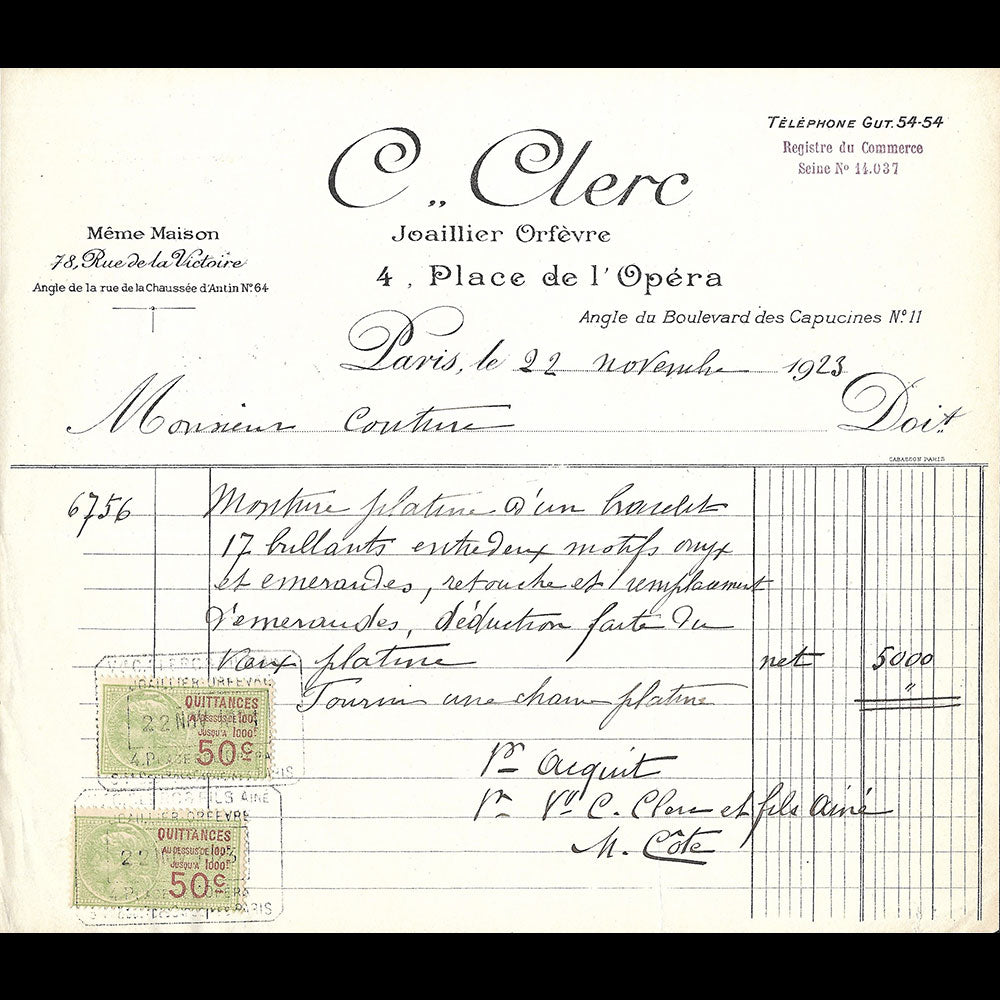 TÉLÉPHONE GUT. 54-54
Registre du Commerce
Seine Nº 14.037
C. Clerc
Joaillier Orfèvre
4, Place de l'Opéra
Angle du Boulevard des Capucines Nº 11
Même Maison
78, Rue de la Victoire
Angle de la rue de la Chaussée d'Antin Nº 64
Paris, le 22 novembre 1923
Monsieur Couture Doit
CABASSON PARIS
6756 Monture platine d'un bracelet
17 brillants entredeux motifs onyx
et emeraudes, retouche et remplacement
d'emeraudes, déduction faite du
vieux platine net 5000 "
Fourni une chaine platine
Pr Acquit
Pr Vve C. Clerc et fils Ainé
M. Cote
JOAILLIER ORFEVRE
22 NOV
4. PLACE
PARIS
QUITTANCES
AU DESSUS DE 100F
JUSQU'A 1000F
50c
FILS AINÉ
JOAILLIER ORFEVRE
22
4. PLACE OPÉRA
PARIS
QUITTANCES
AU DESSUS DE 100F
JUSQU'A 1000F
50c